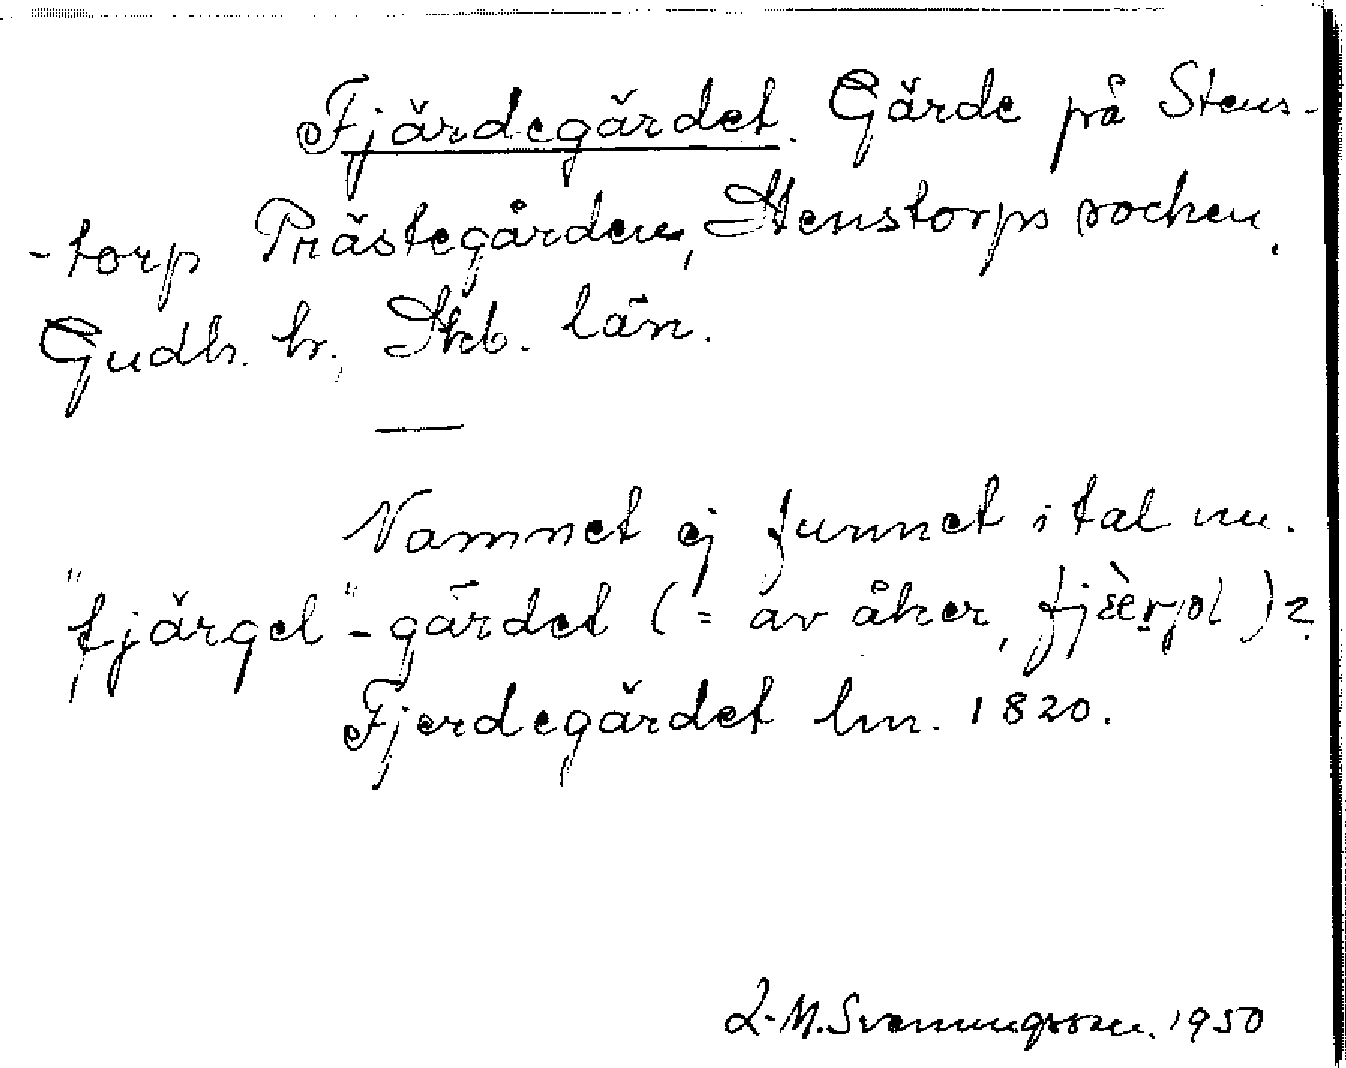 Fjärdegärdet. Gärde på Stens-
-torp Prästegården, Stenstorps socken,
Gudh. hr., Skb. län.
Namnet ej funnet i tal nu.
"fjärgel"-gärdet (= av åker, fjæ̀rgəl)?
Fjerdegärdet lm. 1820.
L-M. Svenungsson. 1950